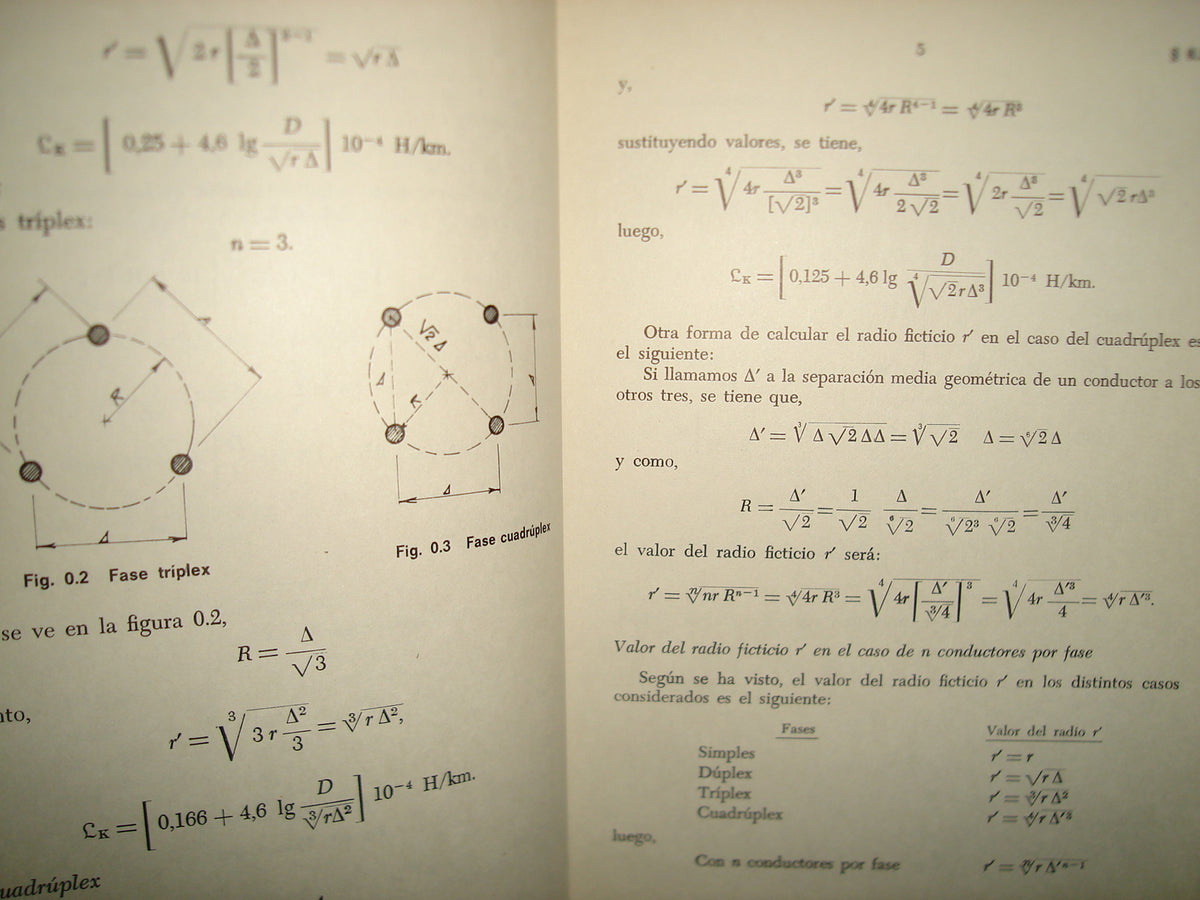 r′ = √(2r[Δ/2]²⁻¹) = √(rΔ)
𝔏ₖ = [0,25 + 4,6 lg D/√(rΔ)] 10⁻⁴ H/km.
s tríplex:
n = 3.
R
Δ
Fig. 0.2 Fase tríplex
√2 Δ
Δ
Δ
Fig. 0.3 Fase cuadrúplex
se ve en la figura 0.2,
R = Δ/√3
nto,
r′ = ∛(3 r Δ²/3) = ∛(r Δ²),
𝔏ₖ = [0,166 + 4,6 lg D/∛(rΔ²)] 10⁻⁴ H/km.
uadrúplex
5
y,
r′ = ∜(4r R⁴⁻¹) = ∜(4r R³)
sustituyendo valores, se tiene,
r′ = ∜(4r Δ³/[√2]³) = ∜(4r Δ³/2√2) = ∜(2r Δ³/√2) = ∜(√2 rΔ³)
luego,
𝔏ₖ = [0,125 + 4,6 lg D/∜(√2 rΔ³)] 10⁻⁴ H/km.
Otra forma de calcular el radio ficticio r′ en el caso del cuadrúplex es
el siguiente:
Si llamamos Δ′ a la separación media geométrica de un conductor a los
otros tres, se tiene que,
Δ′ = ∛(Δ √2 Δ Δ) = ∛√2 Δ = ⁶√2 Δ
y como,
R = Δ′/√2 = 1/√2 Δ/⁶√2 = Δ′/⁶√2³ ⁶√2 = Δ′/∛4
el valor del radio ficticio r′ será:
r′ = ⁿ√(nr Rⁿ⁻¹) = ∜(4r R³) = ∜(4r[Δ′/∛4]³) = ∜(4r Δ′³/4) = ∜(r Δ′³).
Valor del radio ficticio r′ en el caso de n conductores por fase
Según se ha visto, el valor del radio ficticio r′ en los distintos casos
considerados es el siguiente:
Fases Valor del radio r′
Simples r′ = r
Dúplex r′ = √(r Δ)
Tríplex r′ = ∛(r Δ²)
Cuadrúplex r′ = ∜(r Δ′³)
luego,
Con n conductores por fase r′ = ⁿ√(r Δ′ⁿ⁻¹)